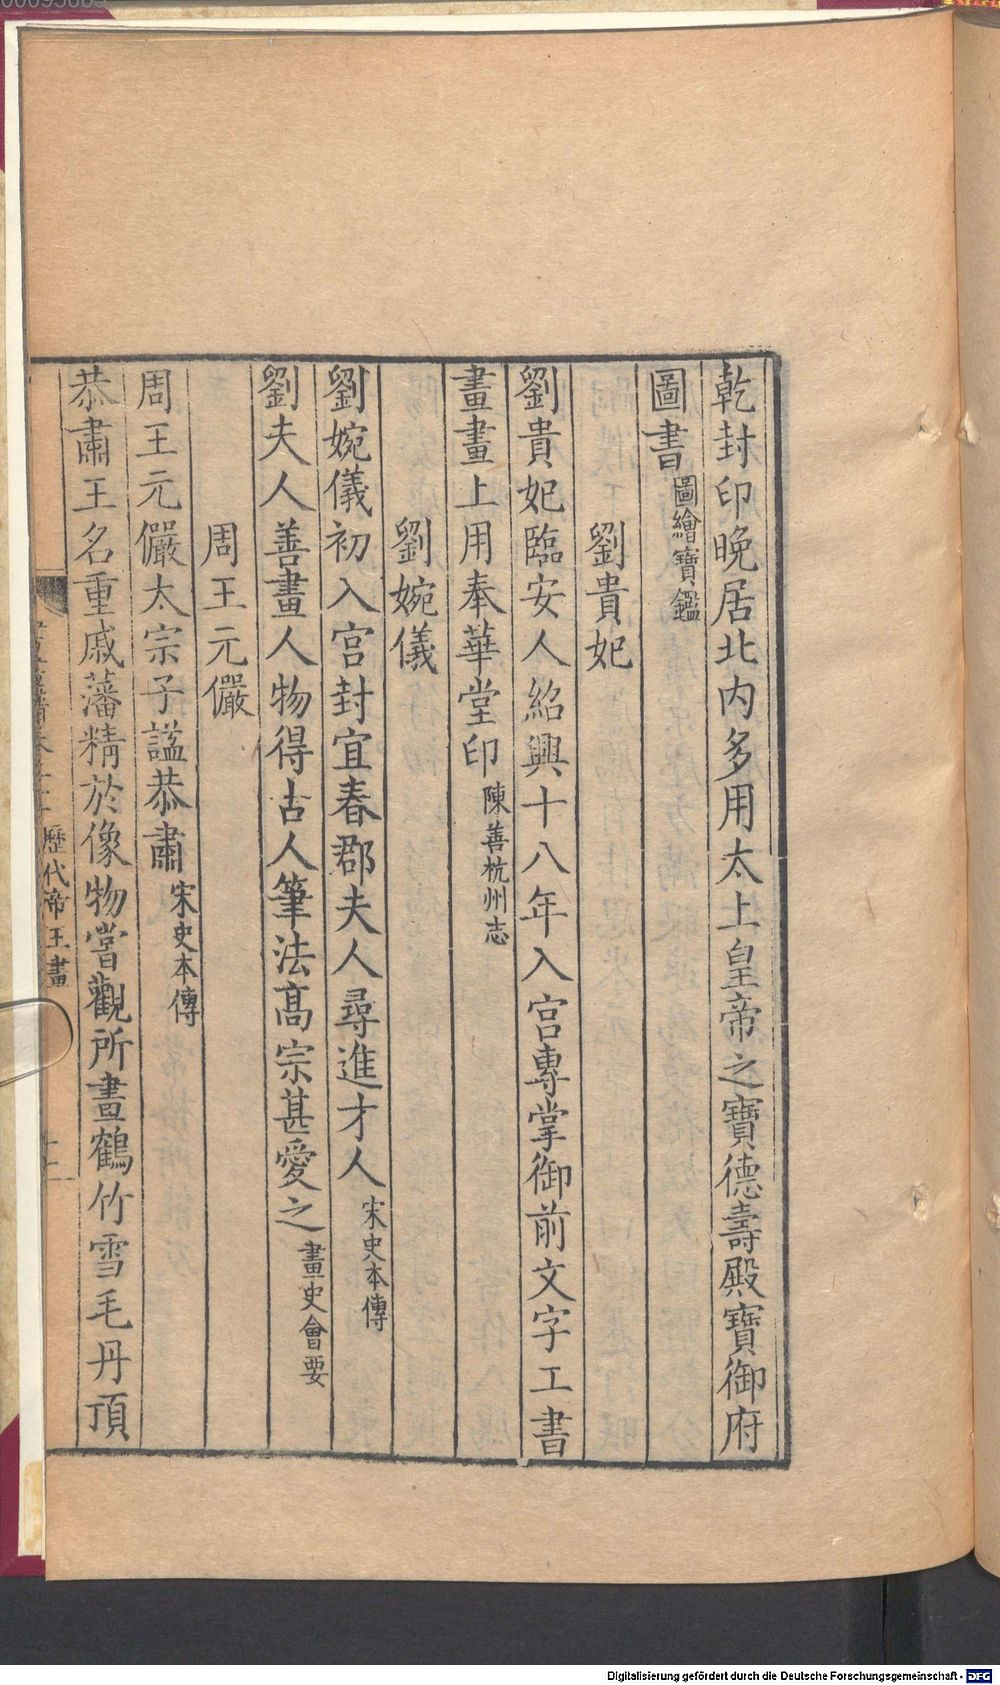 乾封印晚居北内多用太上皇帝之寶德壽殿寶御府
圖書圖繪寶鑑
劉貴妃
劉貴妃臨安人紹興十八年入宮專掌御前文字工書
畫畫上用奉華堂印陳善杭州志
劉婉儀
劉婉儀初入宮封宜春郡夫人尋進才人宋史本傳
劉夫人善畫人物得古人筆法高宗甚愛之畫史會要
周王元儼
周王元儼太宗子諡恭肅宋史本傳
恭肅王名重戚藩精於像物嘗觀所畫鶴竹雪毛丹頂
歷代帝王畫
Digitalisierung gefördert durch die Deutsche Forschungsgemeinschaft - DFG